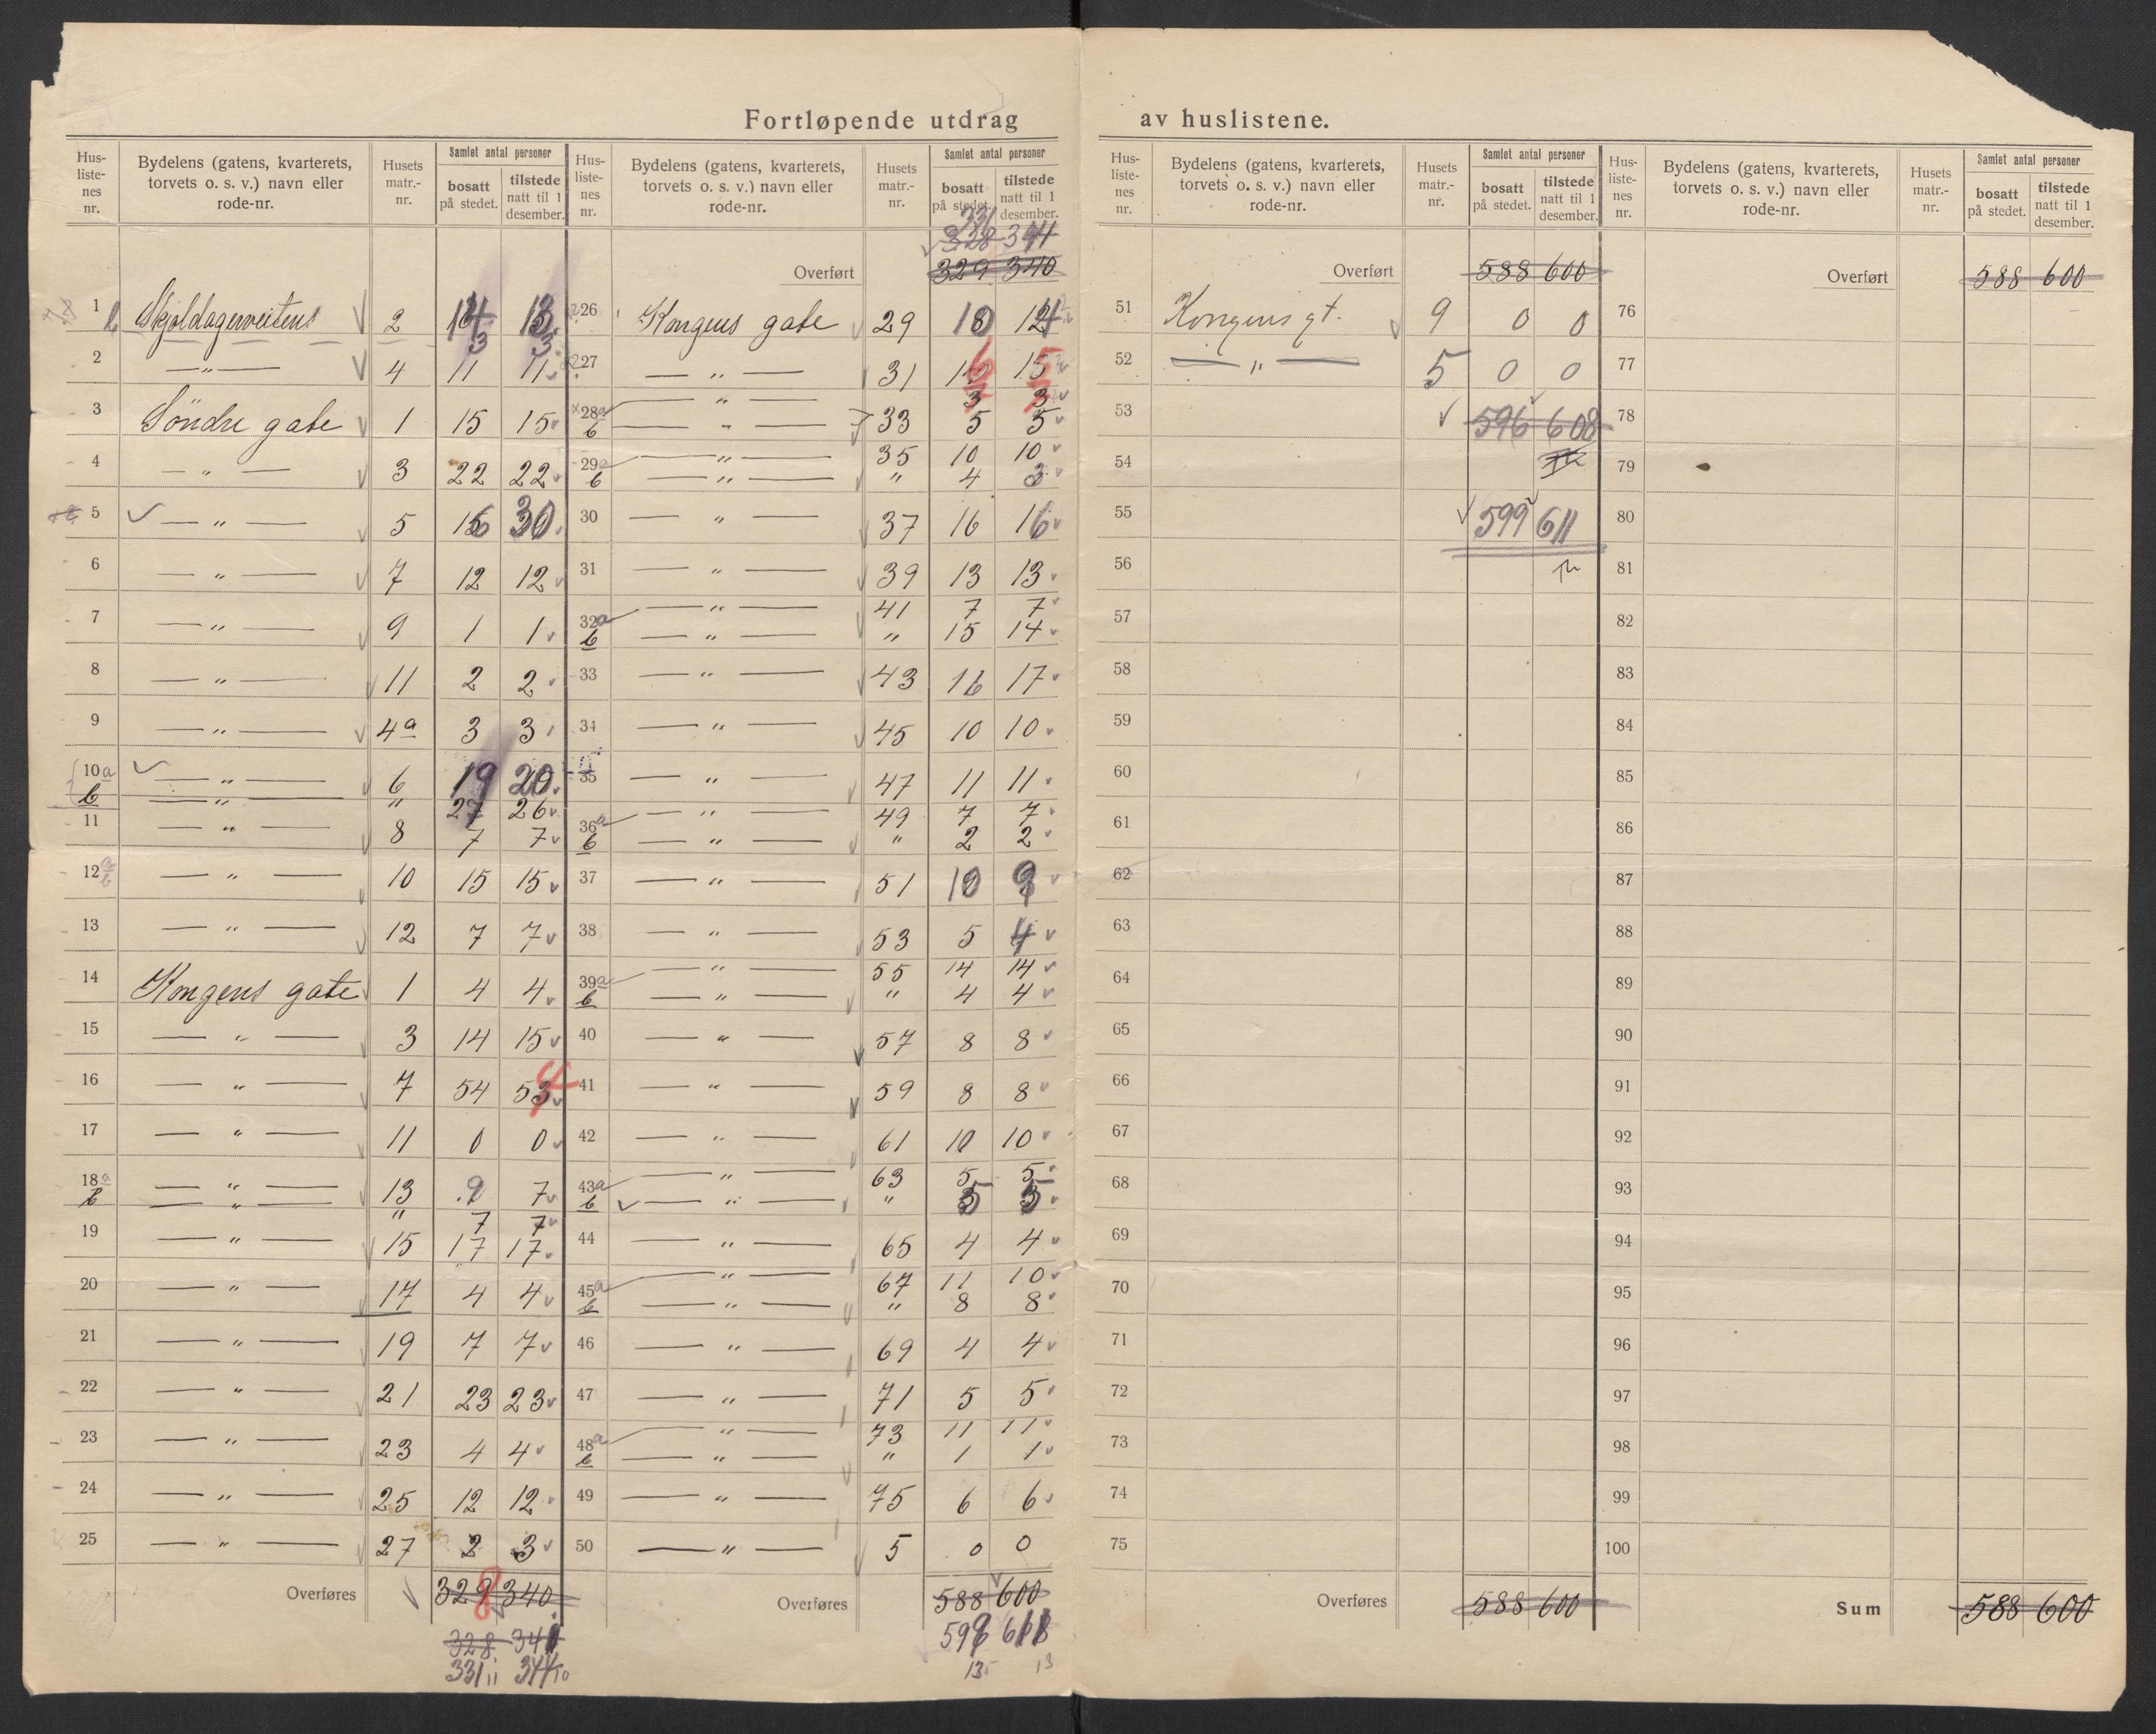 Fortløpende utdrag av huslistene.
Hus-liste-nes nr. | Bydelens (gatens, kvarterets, torvets o. s. v.) navn eller rode-nr. | Husets matr.-nr. | Samlet antal personer | bosatt på stedet. | tilstede natt til 1 desember.
1 Skjoldagerveitens 2 14 13
3 3
2 — " — 4 11 11
3 Söndre gate 1 15 15
4 — " — 3 22 22
5 — " — 5 16 30
6 — " — 7 12 12
7 — " — 9 1 1
8 — " — 11 2 2
9 — " — 4a 3 3
10a — " — 6 19 20
b — " — " 27 26
11 — " — 8 7 7
12 a b — " — 10 15 15
13 — " — 12 7 7
14 Kongens gate 1 4 4
15 — " — 3 14 15
16 — " — 7 54 53 4
17 — " — 11 0 0
18a — " — 13 9 7
b — " — " 7 7
19 — " — 15 17 17
20 — " — 17 4 4
21 — " — 19 7 7
22 — " — 21 23 23
23 — " — 23 4 4
24 — " — 25 12 12
25 — " — 27 2 3
Overføres 328 340
328 341
331 11 344 10
Hus-liste-nes nr. | Bydelens (gatens, kvarterets, torvets o. s. v.) navn eller rode-nr. | Husets matr.-nr. | Samlet antal personer | bosatt på stedet. | tilstede natt til 1 desember.
331
328 344
Overført 329 340
26 Kongens gate 29 10 12
27 — " — 31 16 15
28a — " — 3 3
b — " — 33 5 5
29a — " — 35 10 10
b — " — " 4 3
30 — " — 37 16 16
31 — " — 39 13 13
32a — " — 41 7 7
b — " — " 15 14
33 — " — 43 16 17
34 — " — 45 10 10
35 — " — 47 11 11
36a — " — 49 7 7
b — " — " 2 2
37 — " — 51 10 9
38 — " — 53 5 4
39a — " — 55 14 14
b — " — " 4 4
40 — " — 57 8 8
41 — " — 59 8 8
42 — " — 61 10 10
43a — " — 63 5 5
b — " — " 5 5
44 — " — 65 4 4
45a — " — 67 11 10
b — " — " 8 8
46 — " — 69 4 4
47 — " — 71 5 5
48a — " — 73 11 11
b — " — " 1 1
49 — " — 75 6 6
50 — " — 5 0 0
Overføres 588 600
599 611
13 13
Hus-liste-nes nr. | Bydelens (gatens, kvarterets, torvets o. s. v.) navn eller rode-nr. | Husets matr.-nr. | Samlet antal personer | bosatt på stedet. | tilstede natt til 1 desember.
Overført 588 600
51 Kongens gt. 9 0 0
52 — " — 5 0 0
53 596 608
54
55 599 611
56
57
58
59
60
61
62
63
64
65
66
67
68
69
70
71
72
73
74
75
Overføres 588 600
Hus-liste-nes nr. | Bydelens (gatens, kvarterets, torvets o. s. v.) navn eller rode-nr. | Husets matr.-nr. | Samlet antal personer | bosatt på stedet. | tilstede natt til 1 desember.
Overført 588 600
76
77
78
79
80
81
82
83
84
85
86
87
88
89
90
91
92
93
94
95
96
97
98
99
100
Sum 588 600